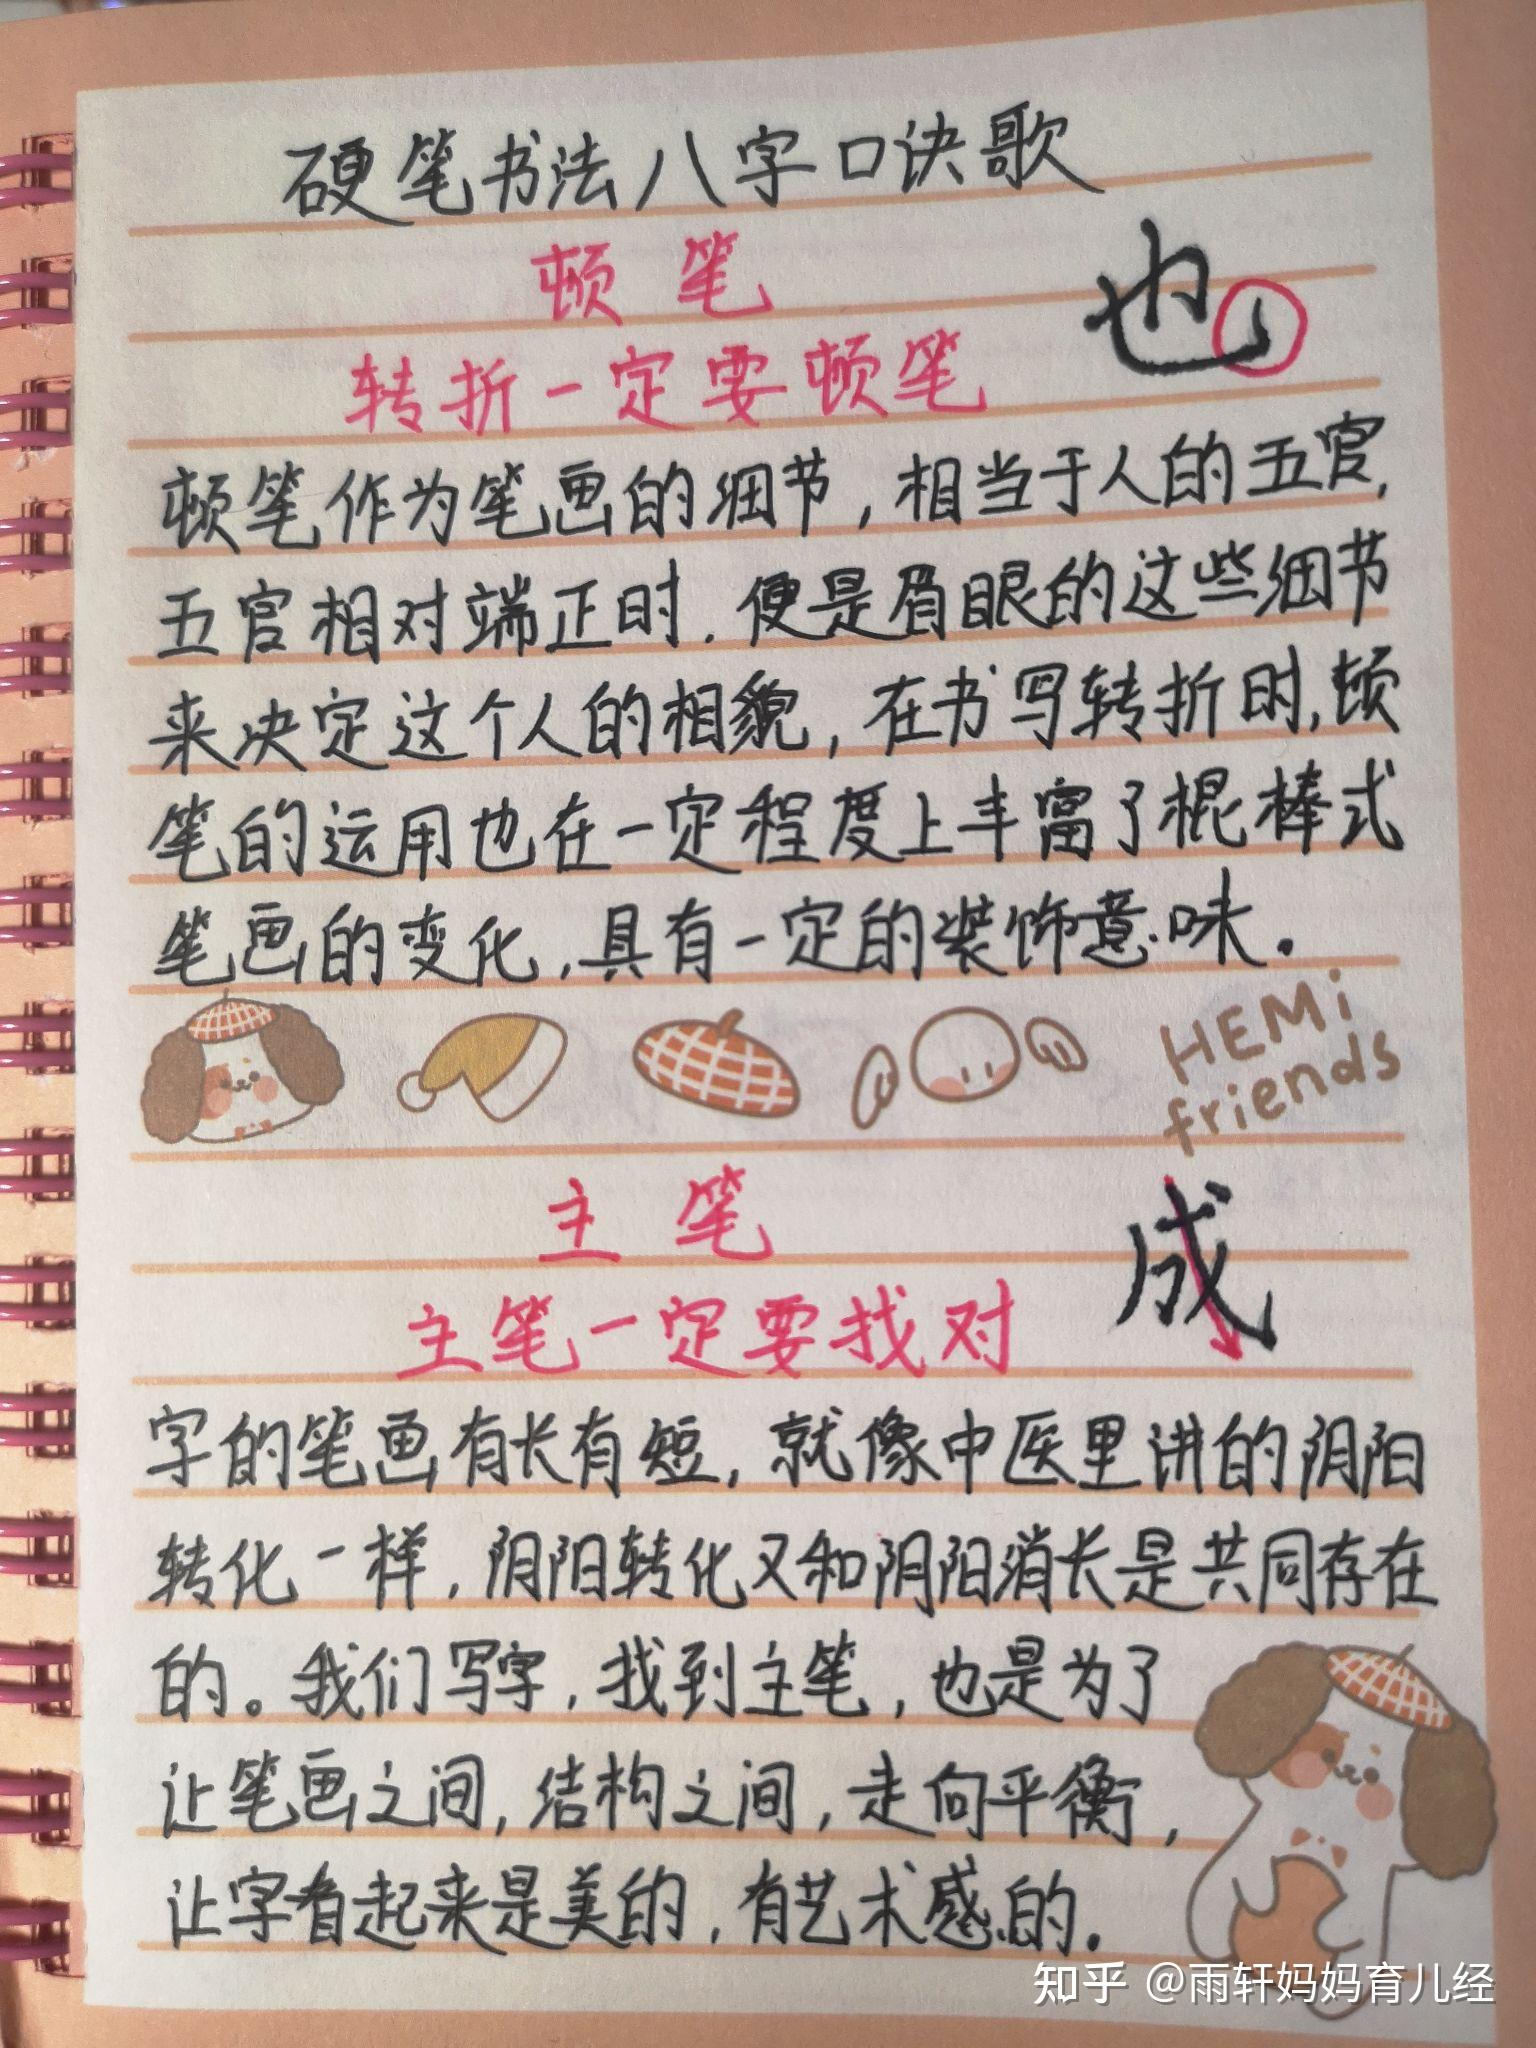 硬笔书法八字口诀歌
顿笔
也
转折一定要顿笔
顿笔作为笔画的细节，相当于人的五官，
五官相对端正时，便是眉眼的这些细节
来决定这个人的相貌，在书写转折时，顿
笔的运用也在一定程度上丰富了棍棒式
笔画的变化，具有一定的装饰意味。
HEMi
friends
主笔
成
主笔一定要找对
字的笔画有长有短，就像中医里讲的阴阳
转化一样，阴阳转化又和阴阳消长是共同存在
的。我们写字，找到主笔，也是为了
让笔画之间，结构之间，走向平衡，
让字看起来是美的，有艺术感的。
知乎 @雨轩妈妈育儿经